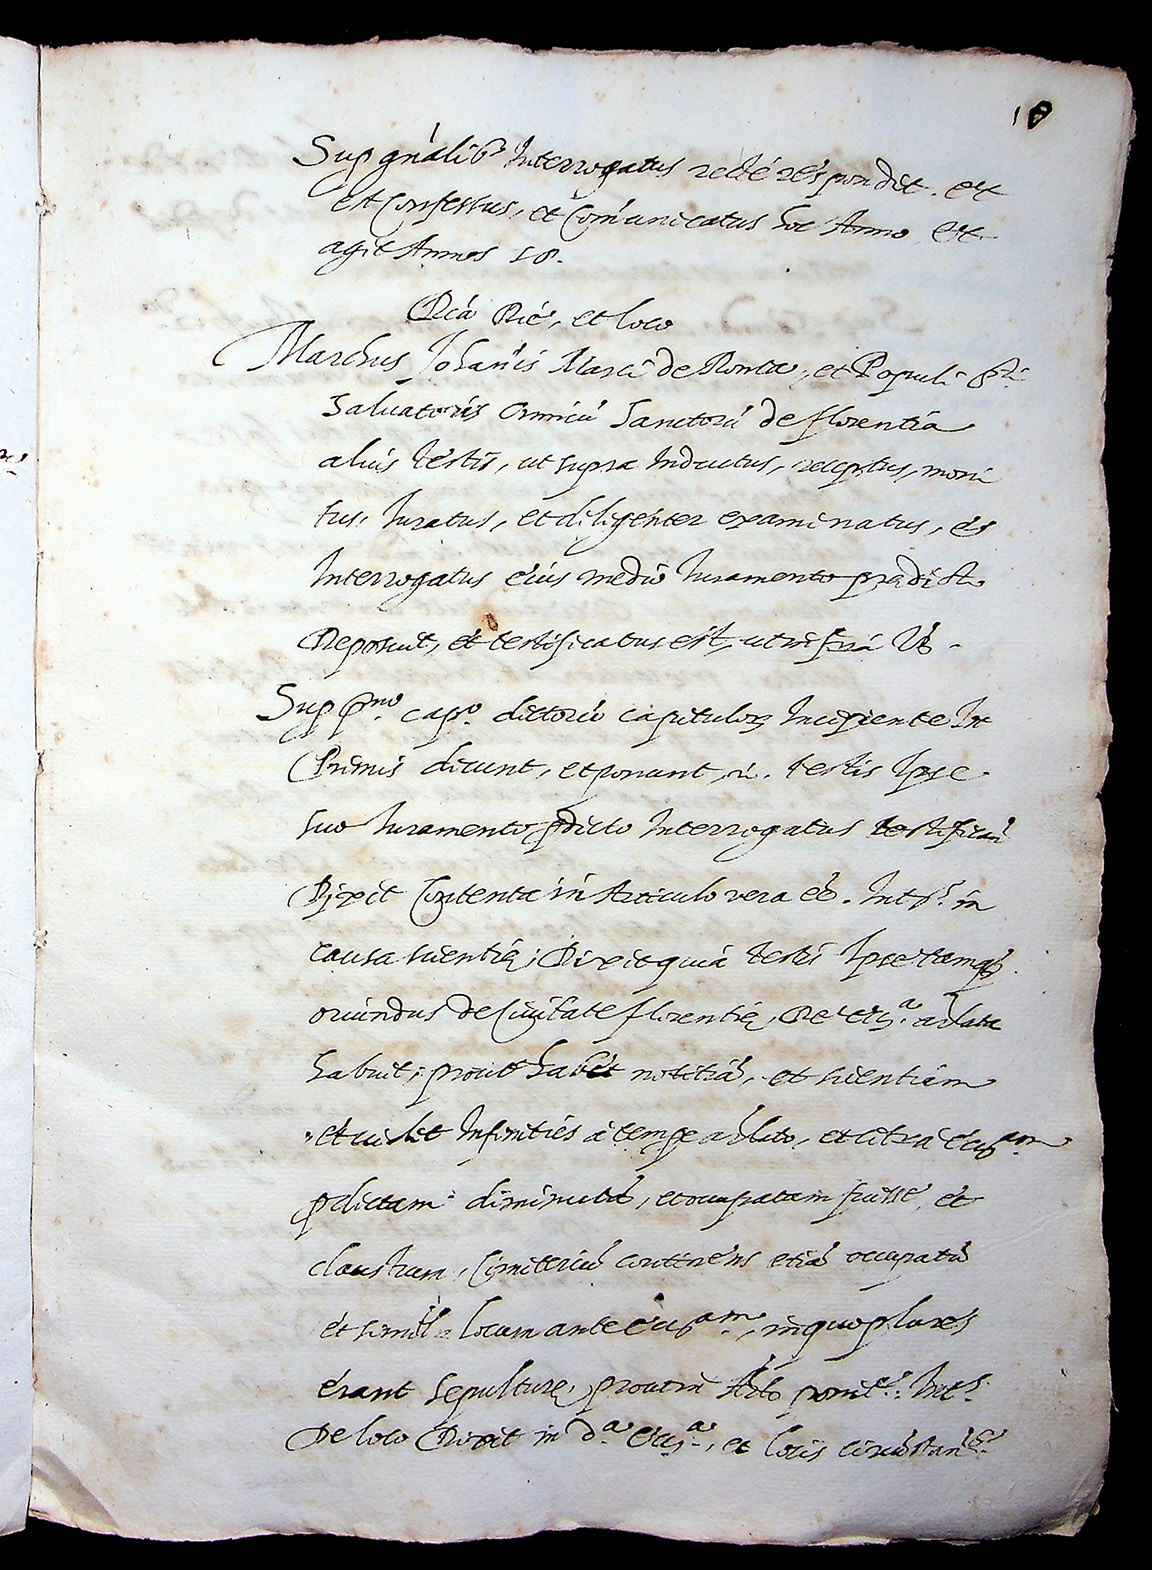 18
Sup gnalib⁹ Interrogatus recte respondit. et
est confessus, et comunicatus hoc Anno et
agit Annos 58.
Dicta Die, et loco
Marchus Johanis Marci de Romea, et Populi Sti
Saluatoris Omniu Sanctoru de florentia
alius testis, ut supra Inductus, receptus, moni
tus, Iuratus, et diligenter examinatus, et
Interrogatus eius medio Iuramento predicto
Deposuit, et testificatus est, ut infra Vz.
Sup pmo capo. dictoru capituloꝝ Incipiente In
Primis dicunt, et ponunt, testis Ipse
suo Iuramento pdicto Interrogatus testificari
Dixit Contenta in Articulo vera eē. Intus. in
causa scientię, Dixit quia testis Ipse tamq
oriundus de Ciuitate florentię, De Eccla. ablata
habuit, prout habet notitia, et scientiam
et uidit Infinities a tempe ablato, et citra Eccliam
pdictam diminuta, et occupatam fuisse, et
claustrum, Cimiteriu continens etia occupatu
et simil locum ante Eccliam, in quo plures
erant sepulturę, prout in Arlo ponit: Intus.
De loco Dixit in Da. Eccla., et locis circustantib⁹